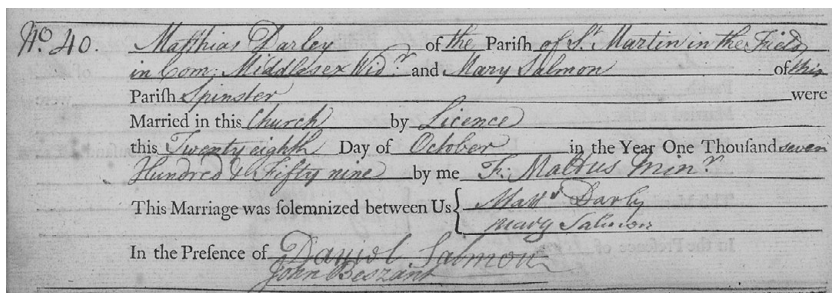 No. 40. Matthias Darley of the Parish of St. Martin in the Fields
in Com: Middlesex Widr. and Mary Salmon of this
Parish Spinster were
Married in this Church by Licence
this Twenty eighth Day of October in the Year One Thousand seven
Hundred & Fifty nine by me Minr.
This Marriage was solemnized between Us { Mattw Darly
Mary Salmon
In the Presence of Daniel Salmon
John Beszant